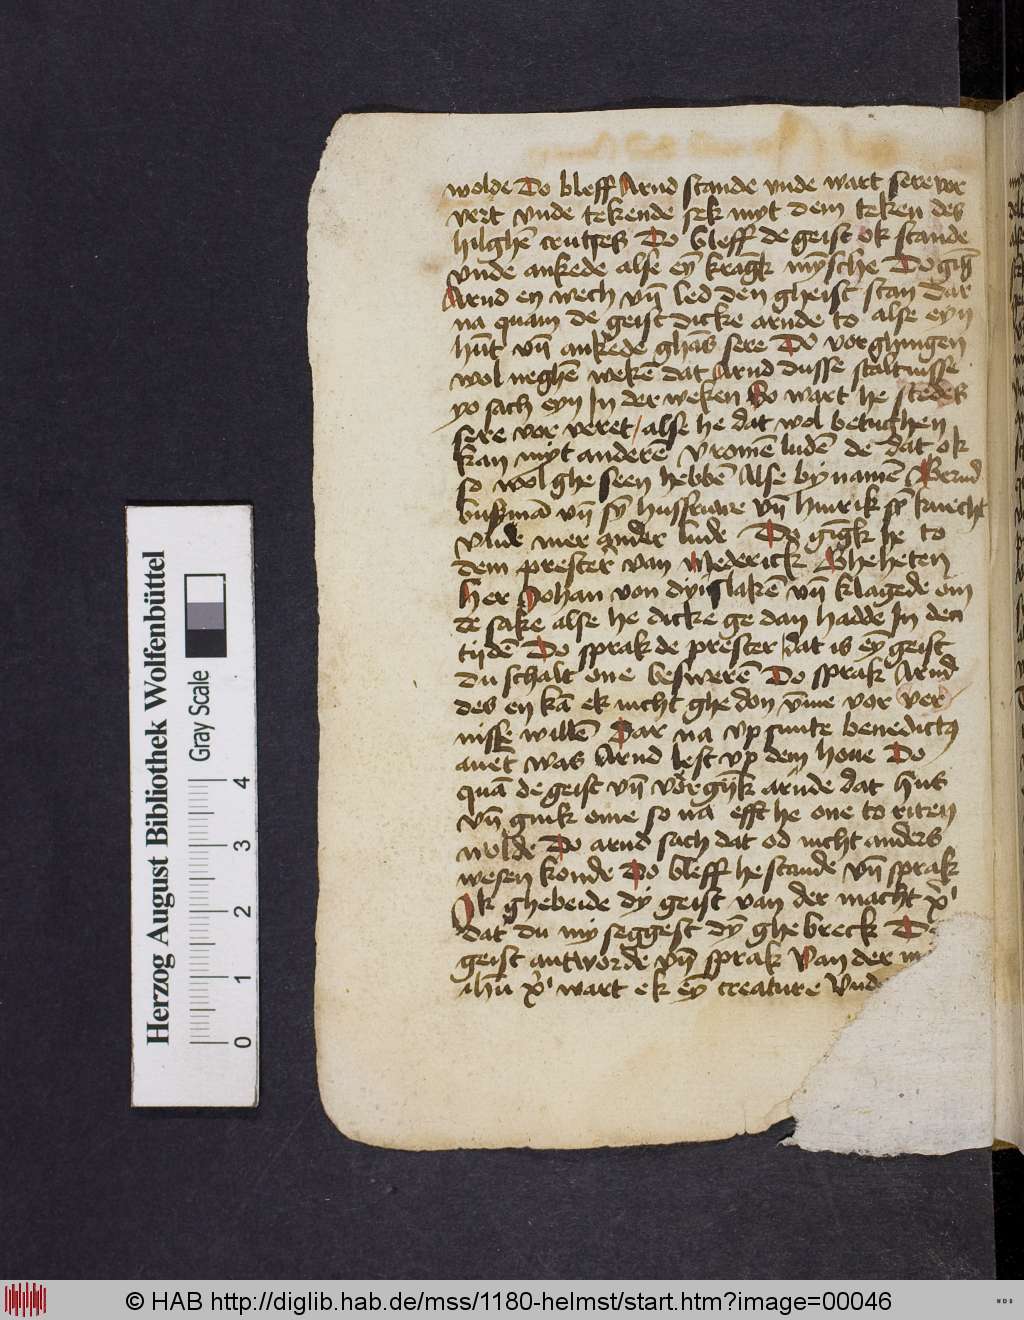 wolde Do bleff Arnd stande vnde wart sere vor
vert vnde tekende sek myt dem teken des
hilghē crutzes Do bleff de geist ok stande
vnde ankede alse eȳ kragk mȳsche Do gīk
Arnd en wech vn̄ led den gheist stan Dar
na quam de geist dicke arnde to alse eyn
hūt vn̄ ankede ghās sere Do vorghingen
wol neghē wekē dat Arnd dusse staltnisse
yo sach eyn In der weken So wart he stedes
sere vor veret / alse he dat wol betughen
kan myt anderē vromē ludē de dat ok
so wol ghe seen hebbē Alse by namē Bernd
busmā vn̄ sȳ husfruwe vn̄ hinrik sȳ knecht
vnde mer ander lude Do gīgk he to
dem prester van Mederick Gheheten
her Johan von dynslakē vn̄ klagede om
de sake alse he dicke ge dan hadde In den
tydē Do sprak de prester dat is eȳ geist
du schalt one beswerē Do sprak Arnd
des en kā ek nicht ghe don vm̄e vor ver
nisse willē Dar na vp sunte benedictꝰ
auēt was Arnd lest vp dem houe Do
quā de geist vn̄ vorgīk arnde dat hus
vn̄ gink ome so na efft he one to riten
wolde Do arnd sach dat od nicht anders
wesen konde Do bleff he stande vn̄ sprak
Ik ghebeide dy geist van der macht xp̄i
dat du my seggest dȳ ghebreck D
geist antworde vn̄ sprak Van der m
ihū xp̄i wart ek eȳ creature Vnde
Herzog August Bibliothek Wolfenbüttel
Gray Scale
0 1 2 3 4
© HAB http://diglib.hab.de/mss/1180-helmst/start.htm?image=00046